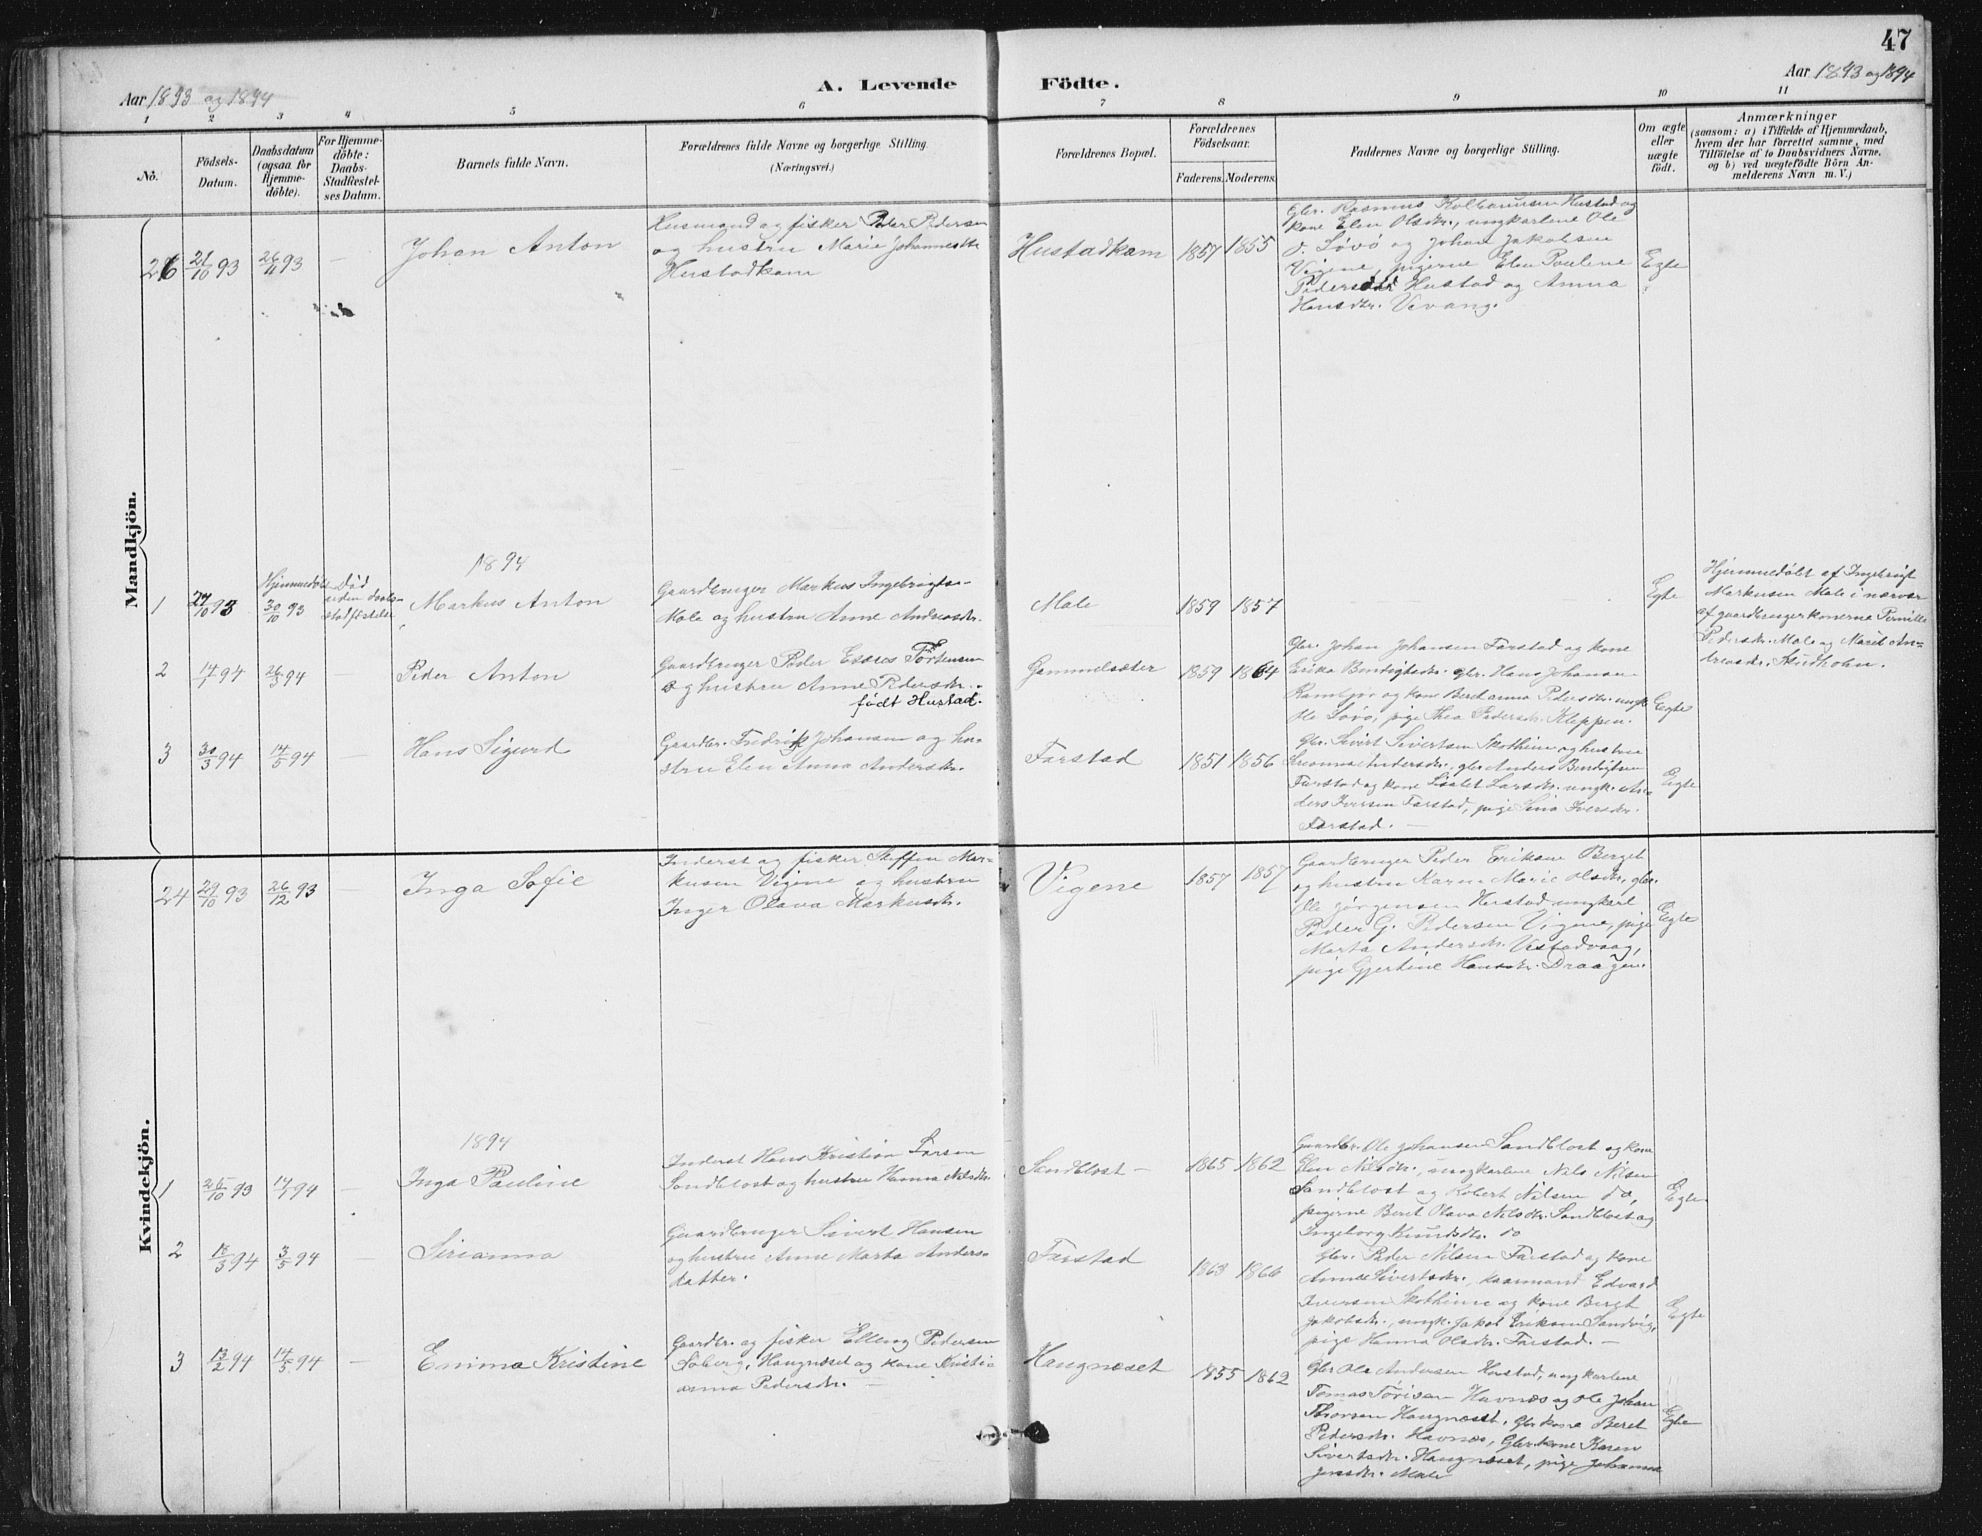 47
Aar 1893 og 1894
A. Levende Födte.
Aar 1893 og 1894
1 2 3 4 5 6 7 8 9 10 11
No.
Födsels-Datum.
Daabsdatum (ogsaa for Hjemme-döbte).
For Hjemme-döbte: Daabs-Stadfæstel-ses Datum.
Barnets fulde Navn.
Forældrenes fulde Navne og borgerlige Stilling.
(Næringsvei.)
Forældrenes Bopæl.
Forældrenes Födselsaar.
Faderens. Moderens.
Faddernes Navne og borgerlige Stilling.
Om ægte eller uægte födt.
Anmærkninger
(saasom: a) i Tilfælde af Hjemmedaab,
hvem der har forrettet samme, med
Tilföielse af to Daabsvidners Navne.
og b) ved uægtefödte Börn An-
melderens Navn m. V.)
Mandkjön.
26 21/10 93 26/11 93 — Johan Anton
Husmand og fisker Peder Pedersen
og hustru Marie Johannesdtr
Hustadkam
Hustadkam 1857 1855
Gbr. Rasmus Kolbeinsen Hustad og
kone Elen Olsdtr., ungkarlene Ole
O. Søvø og Johan Jakobsen
Vigene, pigerne Elen Pauline
Pedersdtr Hustad og Anna
Hansdtr. Vevang.
Egte
1894
1 27/10 93 Hjemmedøbt 30/10 93 Død
Markus Anton
Gaardbruger Markus Ingebrigtsen
Male og hustru Anne Andreasdtr.
Male 1859 1857
Egte
Hjemmedøbt af Ingebrigt
Markusen Male i nærvær
af gaardbrugerkonerne Pernille
Pedersdtr. Male og Marit An-
dreasdtr. Studholm.
2 14/1 94 26/3 94 — Peder Anton
Gaardbruger Peder Torstensen
og hustru Anne Pedersdtr.
født Hustad.
Gammelsæter 1859 1864
Gbr. Johan Johansen Farstad og kone
Erika Bendigtsdtr. gbr. Hans Johansen
og kone Beret anna Pedersdtr. ungk
Ole Søvø, pige Thea Pedersdtr. Kleppen.
Egte
3 30/3 94 14/5 94 — Hans Sigurd
Gaardbr. Fredrik Johansen og hu-
stru Elen Anna Andersdtr.
Farstad 1851 1856
Gbr. Sivert Sivertsen Skothein og hustru
Andersdtr. gbr Anders Bendigtsen
Farstad og kone Lisabet Larsdtr. ungk. An-
ders Iversen Farstad, pige Sina Iversdtr.
Farstad. —
Egte
Kvindekjön.
24 29/10 93 26/12 93 — Inga Sofie
Inderst og fisker Steffen Mar-
kusen Vigene og hustru
Inger Olava Markusdtr.
Vigene 1857 1857
Gaardbruger Peder Eriksen Berget
og hustru Karen Marie Olsdtr, gbr.
Ole Jørgensen Hustad ungkarl
Peder G. Pedersen Vigene, pige
Marta Andersdtr. Vestadvaag,
pige Gjertine Hansdtr. Draagen.
Egte
1894
1 25/10 93 14/1 94 — Inga Pauline
Inderst Hans Kristian Larsen
Sandblost og hustru Hanna Nilsdtr.
Sandblost — 1865 1862
Gaardbr. Ole Johansen Sandblost og kone
Elen Nilsdtr., ungkarlene Nils Nilsen
Sandblost og Robert Nilsen do,
pigerne Beret Olava Nilsdtr. Sandblost og
Ingeborg Knudsdtr. do
Egte
2 13/3 94 3/5 94 — Sirianna
Gaardbruger Sivert Hansen
og hustru Anne Marta Anders-
datter.
Farstad 1863 1866
Gbr. Peder Nilsen Farstad og kone
Anne Sivertsdtr., kaarmand Edvard
Iversen Skothein og kone Beret
Jakobsdtr., ungk. Jakob Eriksen Sandvig,
pige Hanna Olsdtr. Farstad. —
Egte
3 13/2 94 14/5 94 — Emma Kristine
Gaardbr. og fisker Elling Pedersen
Soberg, Haugnæset og kone Kristi-
anna Pedersdtr. —
Haugnæset 1855 1862
Gbr Ole Andersen Hustad, ungkarlene
Tomas Havnæs og Ole Johan
Thorsen Haugnæset, Gbr kone Beret
Pedersdtr. Havnæs, Gbr kone Karen
Sivertsdtr. Haugnæset, pige Johanna
Jensdtr. Male
Egte